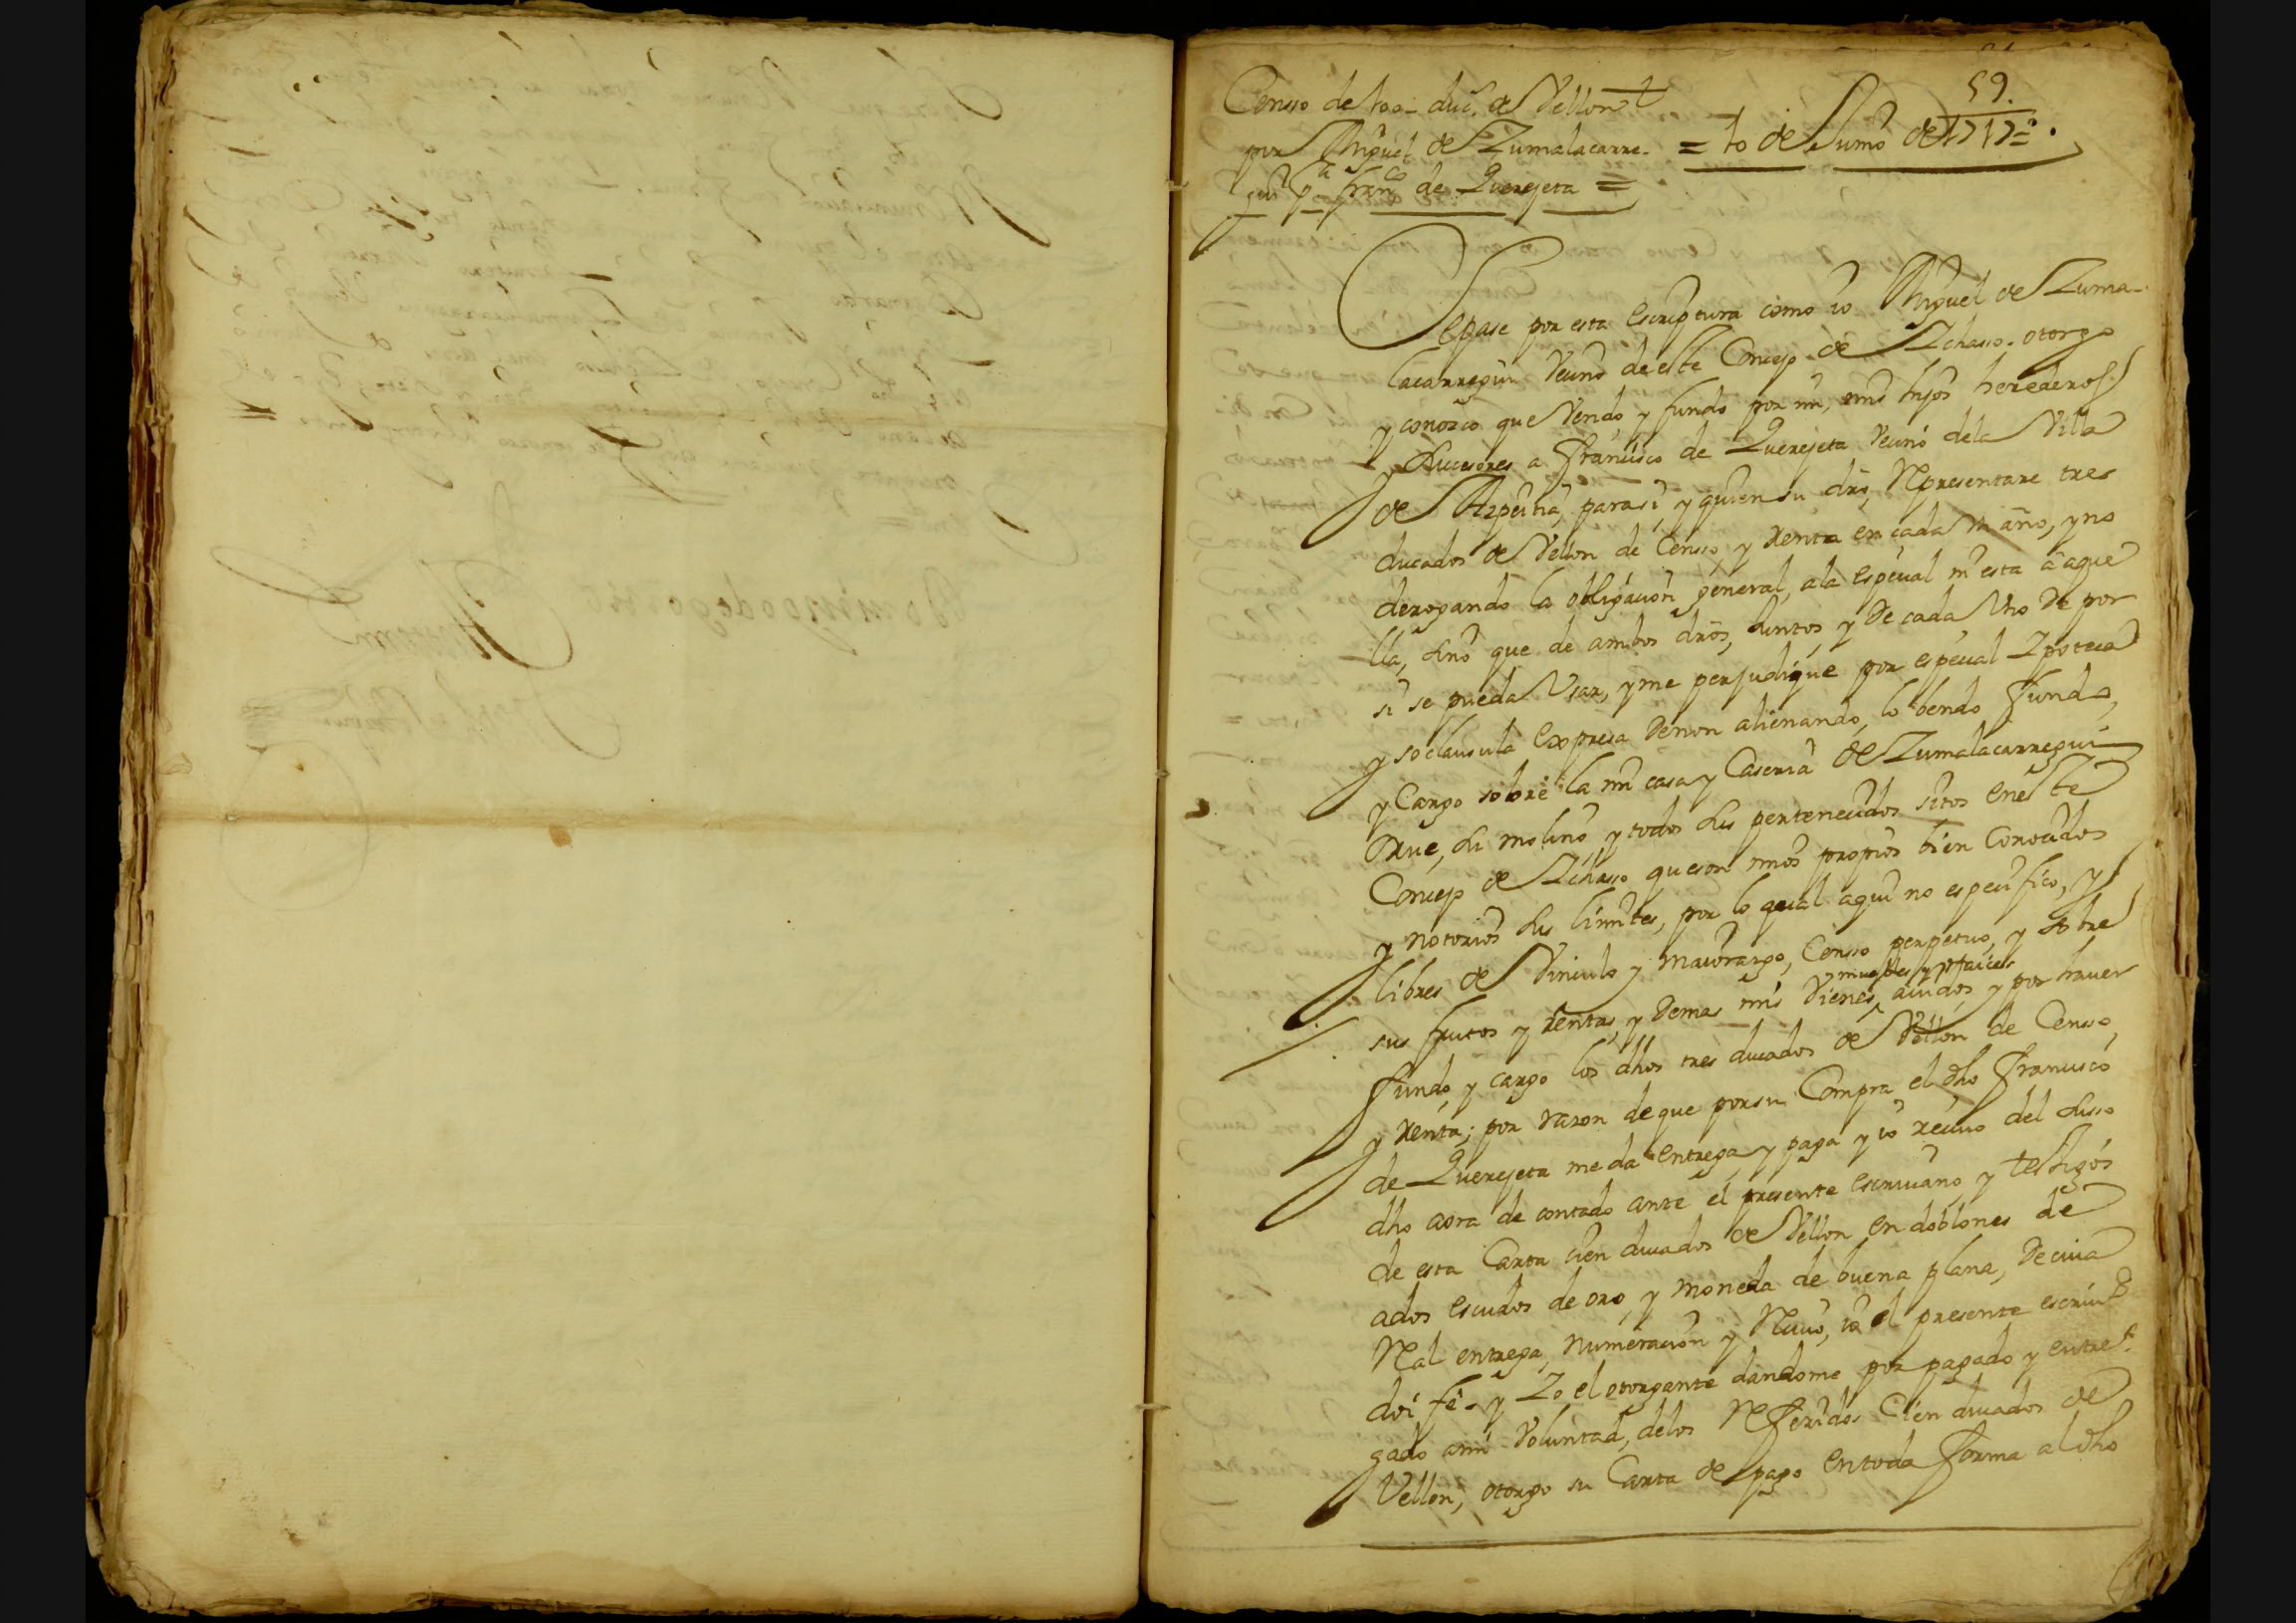 59.
Censso de 100- duc.s de Vellon
por Miguel de Zumalacarre-
gui p.a Fran.co de Querejeta =
= 10 de Junio de 1717 =
Sepase por esta escriptura como io Miguel de Zuma-
lacarregui vecino de este Concejo de Ichasso. otorgo
y conozco que vendo y fundo por mi, mis hijos herederos
y subcesores a Francisco de Querejeta vecino dela Villa
de Azpeitia, parasi, y quien su dro, Representare tres
ducados de Vellon de Censso, y renta en cada un año, y no
derogando la obligacion general, ala especial ni esta â aque
lla, sino que de ambos dros, juntos, y de cada uno de por
si se pueda Usar, y me perjudique por especial Ipoteca
y so clausula expresa denon alienando, lo bendo fundo,
y Cargo sobre la mi casa y Caseria de Zumalacarregui
Orue, su molino y todos sus pertenecidos sitos eneste
Concejo de Ichasso queson mios propios bien Conocidos
y notorios sus limites, por lo qual aqui no especifico, y
libres de Vinculo y maiorazgo, Censso perpetuo, y sobre
muebles y raices
sus frutos y rentas, y demas mis Vienes, auidos y por hauer
fundo, y cargo los dhos tres ducados de Vellon de Censso,
y renta; por razon de que por su Compra el dho Francisco
de Querejeta me da entrega y paga y io reciuo del suso
dho aora de contado ante el presente escriuano, y testigos
de esta Carta cien ducados de Vellon en doblones de
ados escudos de oro, y moneda de buena plata, de cuia
Real entrega, numeracion y Reciuo, io el presente escriu.o
doi fe- y Io el otorgante dandome por pagado y entre-
gado ami Voluntad, delos Referidos Cien ducados de
Vellon, otorgo su Carta de pago en toda forma al dho